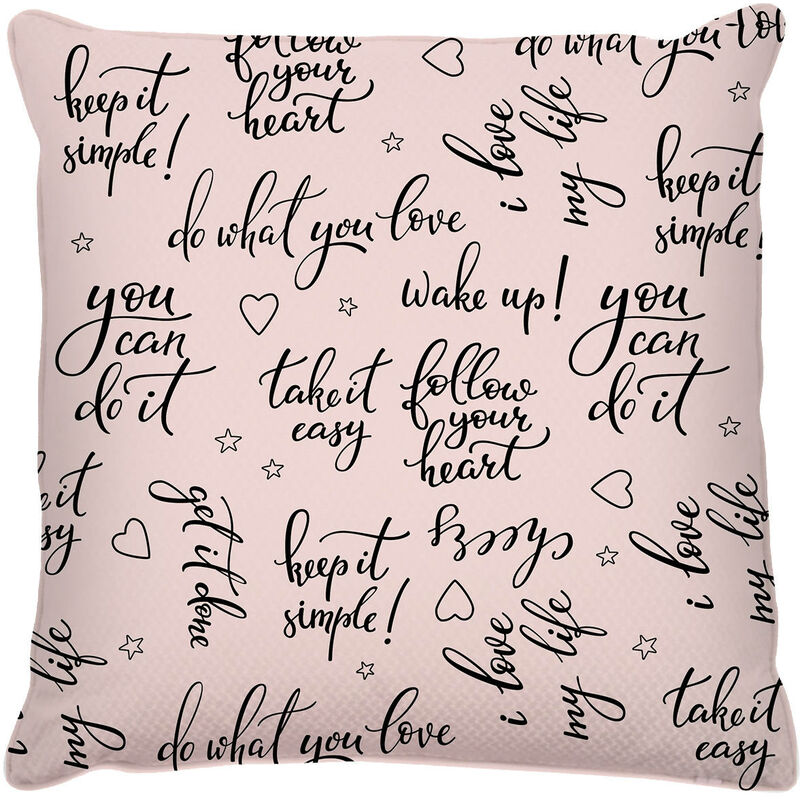 follow
your
heart
do what you lo
keep it
simple!
i love
my life
keep it
simple!
do what you love
wake up!
you
can
do it
you
can
do it
take it
easy
follow
your
heart
e it
sy
get it done
keep it
simple!
i love
my life
i love
my life
my life
take it
easy
do what you love